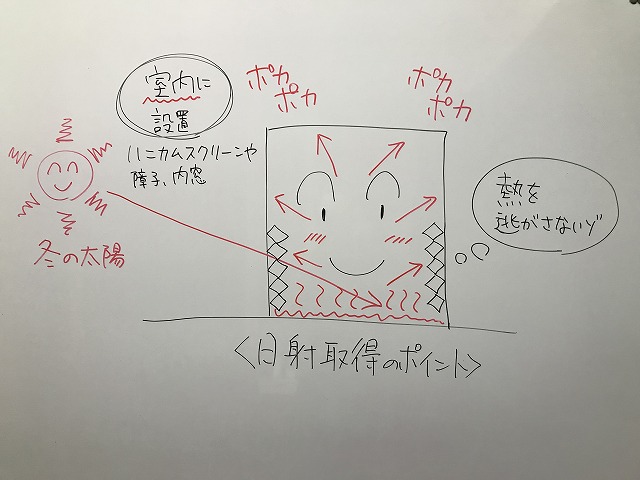 室内に
設置
ハニカムスクリーンや
障子、内窓
ポカ
ポカ
ポカ
ポカ
冬の太陽
熱を
逃がさないゾ
〈日射取得のポイント〉